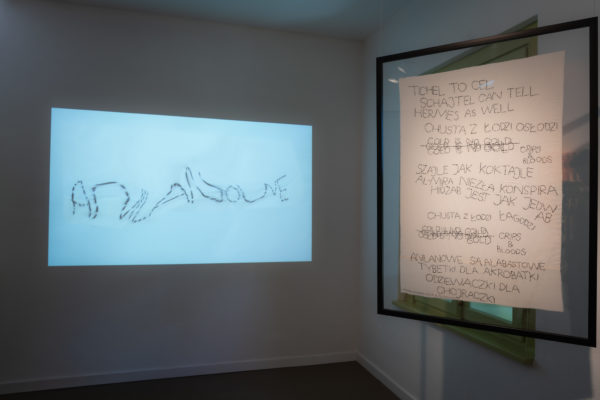 ANILANOWE
TICHEL TO CEL
SCHAJTEL CAN TELL
HERMES AS WELL
CHUSTA Z ŁODZI OSŁODZI
CRIPS
&
BLOODS
SZALE JAK KOKTAJLE
NIEZŁA KONSPIRA
HIDŻAB JEST JAK JEDW
AB
CHUSTA Z ŁODZI ŁAGODZI
CRIPS
&
BLOODS
ANILANOWE SĄ ALABASTOWE
TYBETKI DLA AKROBATKI
ODZIEWACZKI DLA
CHOJRACZKI